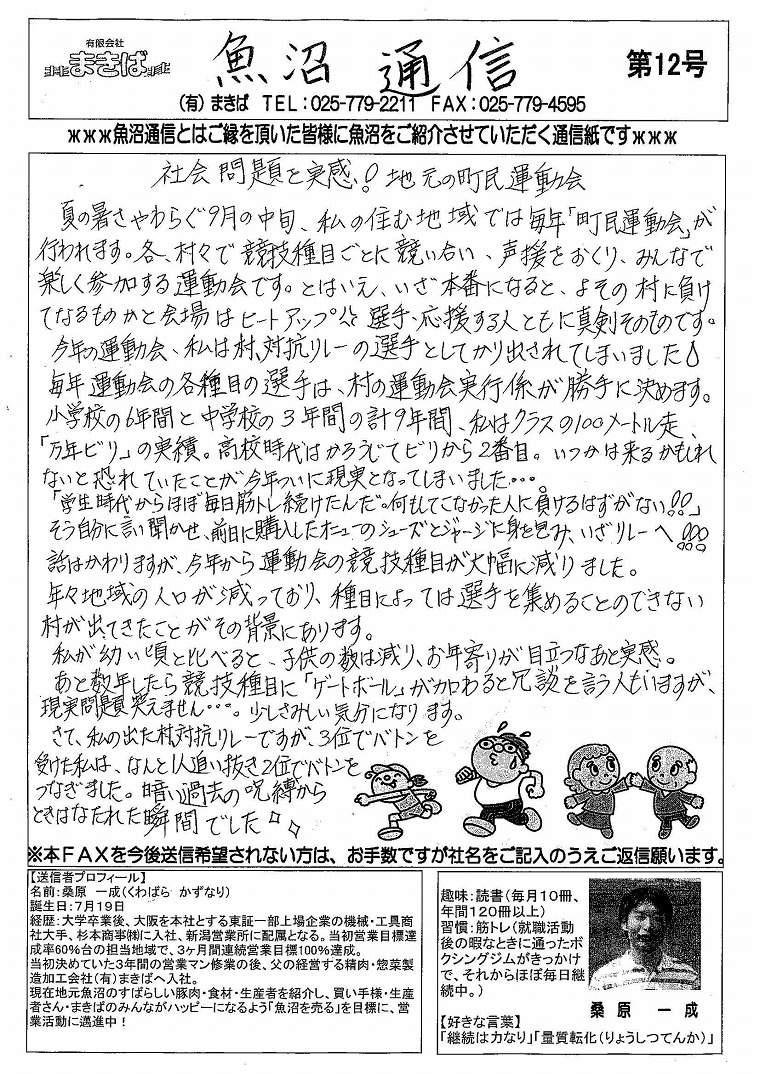 有限会社
まきば
魚沼 通信
第12号
(有)まきば TEL:025-779-2211 FAX:025-779-4595
ж ж ж魚沼通信とはご縁を頂いた皆様に魚沼をご紹介させていただく通信紙ですж ж ж
社会問題を実感!地元の町民運動会
夏の暑さやわらぐ9月の中旬、私の住む地域では毎年「町民運動会」が
行われます。各、村々で競技種目ごとに競い合い、声援をおくり、みんなで
楽しく参加する運動会です。とはいえ、いざ本番になると、よその村に負け
てなるものかと会場はヒートアップ 選手、応援する人ともに真剣そのものです。
今年の運動会、私は村対抗リレーの選手としてかり出されてしまいました
毎年運動会の各種目の選手は、村の運動会実行係が勝手に決めます。
小学校の6年間と中学校の3年間の計9年間、私はクラスの100メートル走、
「万年ビリ」の実績。高校時代はかろうじてビリから2番目。いつかは来るかもしれ
ないと恐れていたことが今年ついに現実となってしまいました・・・。
「学生時代からほぼ毎日筋トレ続けたんだ。何もしてこなかった人に負けるはずがない!!」
そう自分に言い聞かせ、前日に購入したオニューのシューズとジャージに身を包み、いざリレーへ!!!
話はかわりますが、今年から運動会の競技種目が大幅に減りました。
年々地域の人口が減っており、種目によっては選手を集めることのできない
村が出てきたことがその背景にあります。
私が幼い頃と比べると、子供の数は減り、お年寄りが目立つなあと実感。
あと数年したら競技種目に「ゲートボール」が加わると冗談を言う人もいますが、
現実問題笑えません・・・。少しさみしい気分になります。
さて、私の出た村対抗リレーですが、3位でバトンを
受けた私は、なんと1人追い抜き2位でバトンを
つなぎました。暗い過去の呪縛から
ときはなたれた瞬間でした
※本FAXを今後送信希望されない方は、お手数ですが社名をご記入のうえご返信願います。
【送信者プロフィール】
名前:桑原 一成(くわばら かずなり)
誕生日:7月19日
経歴:大学卒業後、大阪を本社とする東証一部上場企業の機械・工具商
社大手、杉本商事㈱に入社、新潟営業所に配属となる。当初営業目標達
成率60%台の担当地域で、3ヶ月間連続営業目標100%達成。
当初決めていた3年間の営業マン修業の後、父の経営する精肉・惣菜製
造加工会社(有)まきばへ入社。
現在地元魚沼のすばらしい豚肉・食材・生産者を紹介し、買い手様・生産
者さん・まきばのみんながハッピーになるよう「魚沼を売る」を目標に、営
業活動に邁進中!
趣味:読書(毎月10冊、
年間120冊以上)
習慣:筋トレ(就職活動
後の暇なときに通ったボ
クシングジムがきっかけ
で、それからほぼ毎日継
続中。)
桑原 一成
【好きな言葉】
「継続は力なり」「量質転化(りょうしつてんか)」